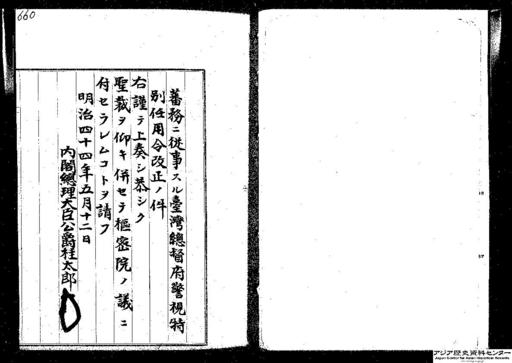 660
蕃務ニ從事スル臺灣總督府警視特
別任用令改正ノ件
右謹テ上奏シ恭シク
聖裁ヲ仰キ併セテ樞密院ノ議ニ
付セラレムコトヲ請フ
明治四十四年五月十二日
内閣總理大臣公爵桂太郎
アジア歴史資料センター
Japan Center for Asian Historical Records